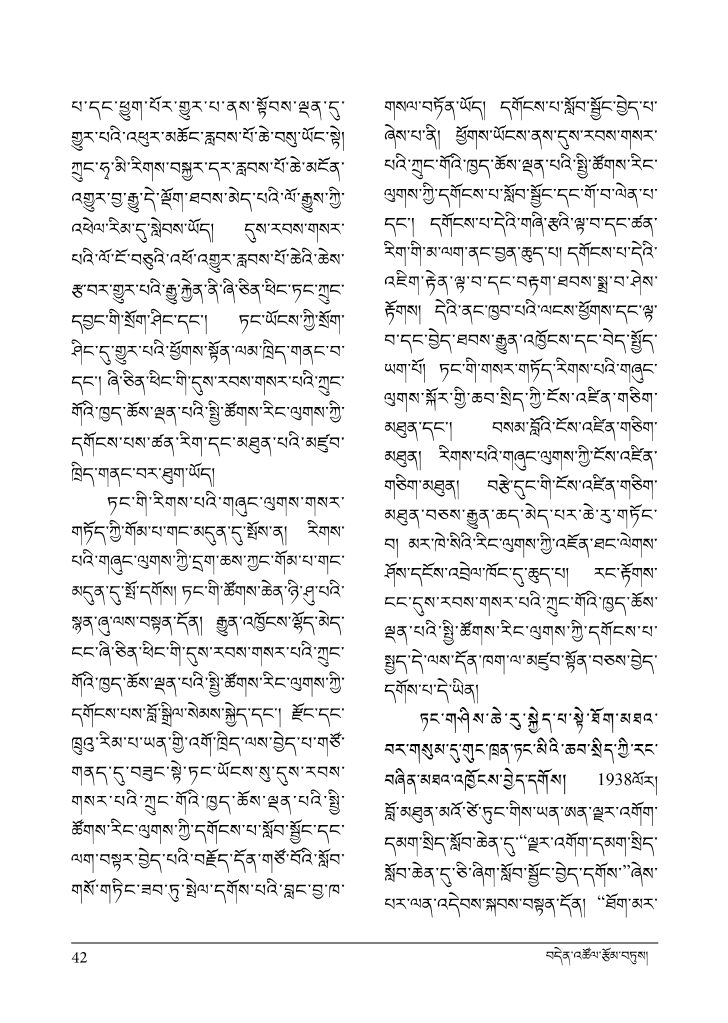 པ་དང་ཕྱུག་པོར་གྱུར་པ་ནས་སྟོབས་ལྡན་དུ་
གྱུར་པའི་འཕུར་མཆོང་རླབས་པོ་ཆེ་བསུ་ཡོང་སྟེ།
ཀྲུང་ཧྭ་མི་རིགས་བསྐྱར་དར་རླབས་པོ་ཆེ་མངོན་
འགྱུར་བྱ་རྒྱུ་དེ་ལྡོག་ཐབས་མེད་པའི་ལོ་རྒྱུས་ཀྱི་
འཕེལ་རིམ་དུ་སླེབས་ཡོད། དུས་རབས་གསར་
པའི་ལོ་ངོ་བཅུའི་འཕོ་འགྱུར་རླབས་པོ་ཆེའི་ཆེས་
རྩ་བར་གྱུར་པའི་རྒྱུ་རྐྱེན་ནི་ཞི་ཅིན་ཕིང་ཏང་ཀྲུང་
དབྱང་གི་སྲོག་ཤིང་དང་། ཏང་ཡོངས་ཀྱི་སྲོག་
ཤིང་དུ་གྱུར་པའི་ཕྱོགས་སྟོན་ལམ་ཁྲིད་གནང་བ་
དང་། ཞི་ཅིན་ཕིང་གི་དུས་རབས་གསར་པའི་ཀྲུང་
གོའི་ཁྱད་ཆོས་ལྡན་པའི་སྤྱི་ཚོགས་རིང་ལུགས་ཀྱི་
དགོངས་པས་ཚན་རིག་དང་མཐུན་པའི་མཛུབ་
ཁྲིད་གནང་བར་ཐུག་ཡོད།
ཏང་གི་རིགས་པའི་གཞུང་ལུགས་གསར་
གཏོད་ཀྱི་གོམ་པ་གང་མདུན་དུ་སྤོས་ན། རིགས་
པའི་གཞུང་ལུགས་ཀྱི་དྲག་ཆས་ཀྱང་གོམ་པ་གང་
མདུན་དུ་སྤོ་དགོས། ཏང་གི་ཚོགས་ཆེན་ཉི་ཤུ་པའི་
སྙན་ཞུ་ལས་བསྟན་དོན། རྒྱུན་འཁྱོངས་ལྷོད་མེད་
ངང་ཞི་ཅིན་ཕིང་གི་དུས་རབས་གསར་པའི་ཀྲུང་
གོའི་ཁྱད་ཆོས་ལྡན་པའི་སྤྱི་ཚོགས་རིང་ལུགས་ཀྱི་
དགོངས་པས་བློ་སྒྲིལ་སེམས་སྐྱེད་དང་། རྫོང་དང་
ཁྲུའུ་རིམ་པ་ཡན་གྱི་འགོ་ཁྲིད་ལས་བྱེད་པ་གཙོ་
གནད་དུ་བཟུང་སྟེ་ཏང་ཡོངས་སུ་དུས་རབས་
གསར་པའི་ཀྲུང་གོའི་ཁྱད་ཆོས་ལྡན་པའི་སྤྱི་
ཚོགས་རིང་ལུགས་ཀྱི་དགོངས་པ་སློབ་སྦྱོང་དང་
ལག་བསྟར་བྱེད་པའི་བརྗོད་དོན་གཙོ་བོའི་སློབ་
གསོ་གཏིང་ཟབ་ཏུ་སྤེལ་དགོས་པའི་བླང་བྱ་ཁ་
གསལ་བཏོན་ཡོད། དགོངས་པ་སློབ་སྦྱོང་བྱེད་པ་
ཞེས་པ་ནི། ཕྱོགས་ཡོངས་ནས་དུས་རབས་གསར་
པའི་ཀྲུང་གོའི་ཁྱད་ཆོས་ལྡན་པའི་སྤྱི་ཚོགས་རིང་
ལུགས་ཀྱི་དགོངས་པ་སློབ་སྦྱོང་དང་གོ་བ་ལེན་པ་
དང་། དགོངས་པ་དེའི་གཞི་རྩའི་ལྟ་བ་དང་ཚན་
རིག་གི་མ་ལག་ནང་བྱན་ཆུད་པ། དགོངས་པ་དེའི་
འཇིག་རྟེན་ལྟ་བ་དང་བརྟག་ཐབས་སྨྲ་བ་ཤེས་
རྟོགས། དེའི་ནང་ཁྱབ་པའི་ལངས་ཕྱོགས་དང་ལྟ་
བ་དང་བྱེད་ཐབས་རྒྱུན་འཁྱོངས་དང་བེད་སྤྱོད་
ཡག་པོ། ཏང་གི་གསར་གཏོད་རིགས་པའི་གཞུང་
ལུགས་སྐོར་གྱི་ཆབ་སྲིད་ཀྱི་ངོས་འཛིན་གཅིག་
མཐུན་དང་། བསམ་བློའི་ངོས་འཛིན་གཅིག་
མཐུན། རིགས་པའི་གཞུང་ལུགས་ཀྱི་ངོས་འཛིན་
གཅིག་མཐུན། བརྩེ་དུང་གི་ངོས་འཛིན་གཅིག་
མཐུན་བཅས་རྒྱུན་ཆད་མེད་པར་ཆེ་རུ་གཏོང་
བ། མར་ཁེ་སིའི་རིང་ལུགས་ཀྱི་འཛོན་ཐང་ལེགས་
ཤོས་དངོས་འབྲེལ་ཁོང་དུ་ཆུད་པ། རང་རྟོགས་
ངང་དུས་རབས་གསར་པའི་ཀྲུང་གོའི་ཁྱད་ཆོས་
ལྡན་པའི་སྤྱི་ཚོགས་རིང་ལུགས་ཀྱི་དགོངས་པ་
སྤྱད་དེ་ལས་དོན་ཁག་ལ་མཛུབ་སྟོན་བཅས་བྱེད་
དགོས་པ་དེ་ཡིན།
ཏང་གཤིས་ཆེ་རུ་སྐྱེད་པ་སྟེ་ཐོག་མཐའ་
བར་གསུམ་དུ་གུང་ཁྲན་ཏང་མིའི་ཆབ་སྲིད་ཀྱི་རང་
བཞིན་མཐའ་འཁྱོངས་བྱེད་དགོས། 1938ལོར།
བློ་མཐུན་མའོ་ཙེ་ཏུང་གིས་ཡན་ཨན་ལྗར་འགོག་
དམག་སྲིད་སློབ་ཆེན་དུ་“ལྗར་འགོག་དམག་སྲིད་
སློབ་ཆེན་དུ་ཅི་ཞིག་སློབ་སྦྱོང་བྱེད་དགོས་”ཞེས་
པར་ལན་འདེབས་སྐབས་བསྟན་དོན། “ཐོག་མར་
42
བདེན་འཚོལ་རྩོམ་བཏུས།